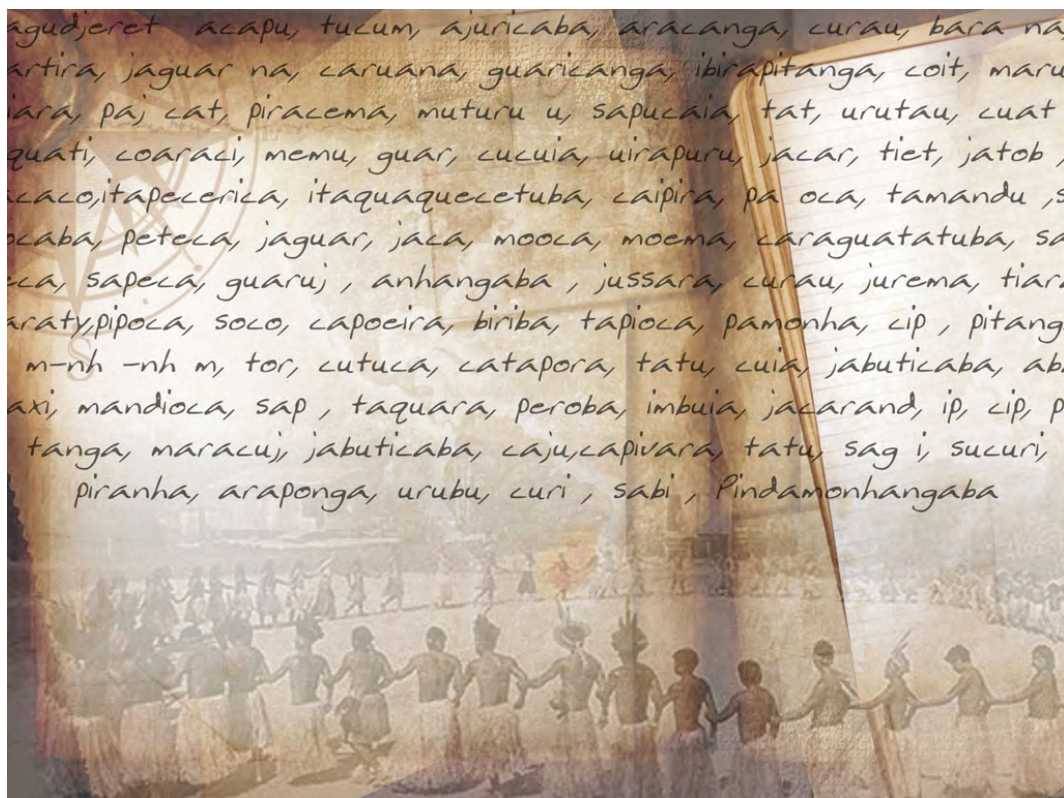 agudjeret acapu, tucum, ajuricaba, aracanga, curau, bara na,
artira, jaguar na, caruana, guaricanga, ibirapitanga, coit, maru
iara, paj cat, piracema, muturu u, sapucaia, tat, urutau, cuat
quati, coaraci, memu, guar, cucuia, uirapuru, jacar, tiet, jatob ,
acaco,itapecerica, itaquaquecetuba, caipira, pa oca, tamandu ,s
ocaba, peteca, jaguar, jaca, mooca, moema, caraguatatuba, sa
eca, sapeca, guaruj , anhangaba , jussara, curau, jurema, tiara
araty,pipoca, soco, capoeira, biriba, tapioca, pamonha, cip , pitang
m-nh -nh m, tor, cutuca, catapora, tatu, cuia, jabuticaba, aba
axi, mandioca, sap , taquara, peroba, imbuia, jacarand, ip, cip, p
tanga, maracuj, jabuticaba, caju,capivara, tatu, sag i, sucuri,
piranha, araponga, urubu, curi , sabi , Pindamonhangaba
S